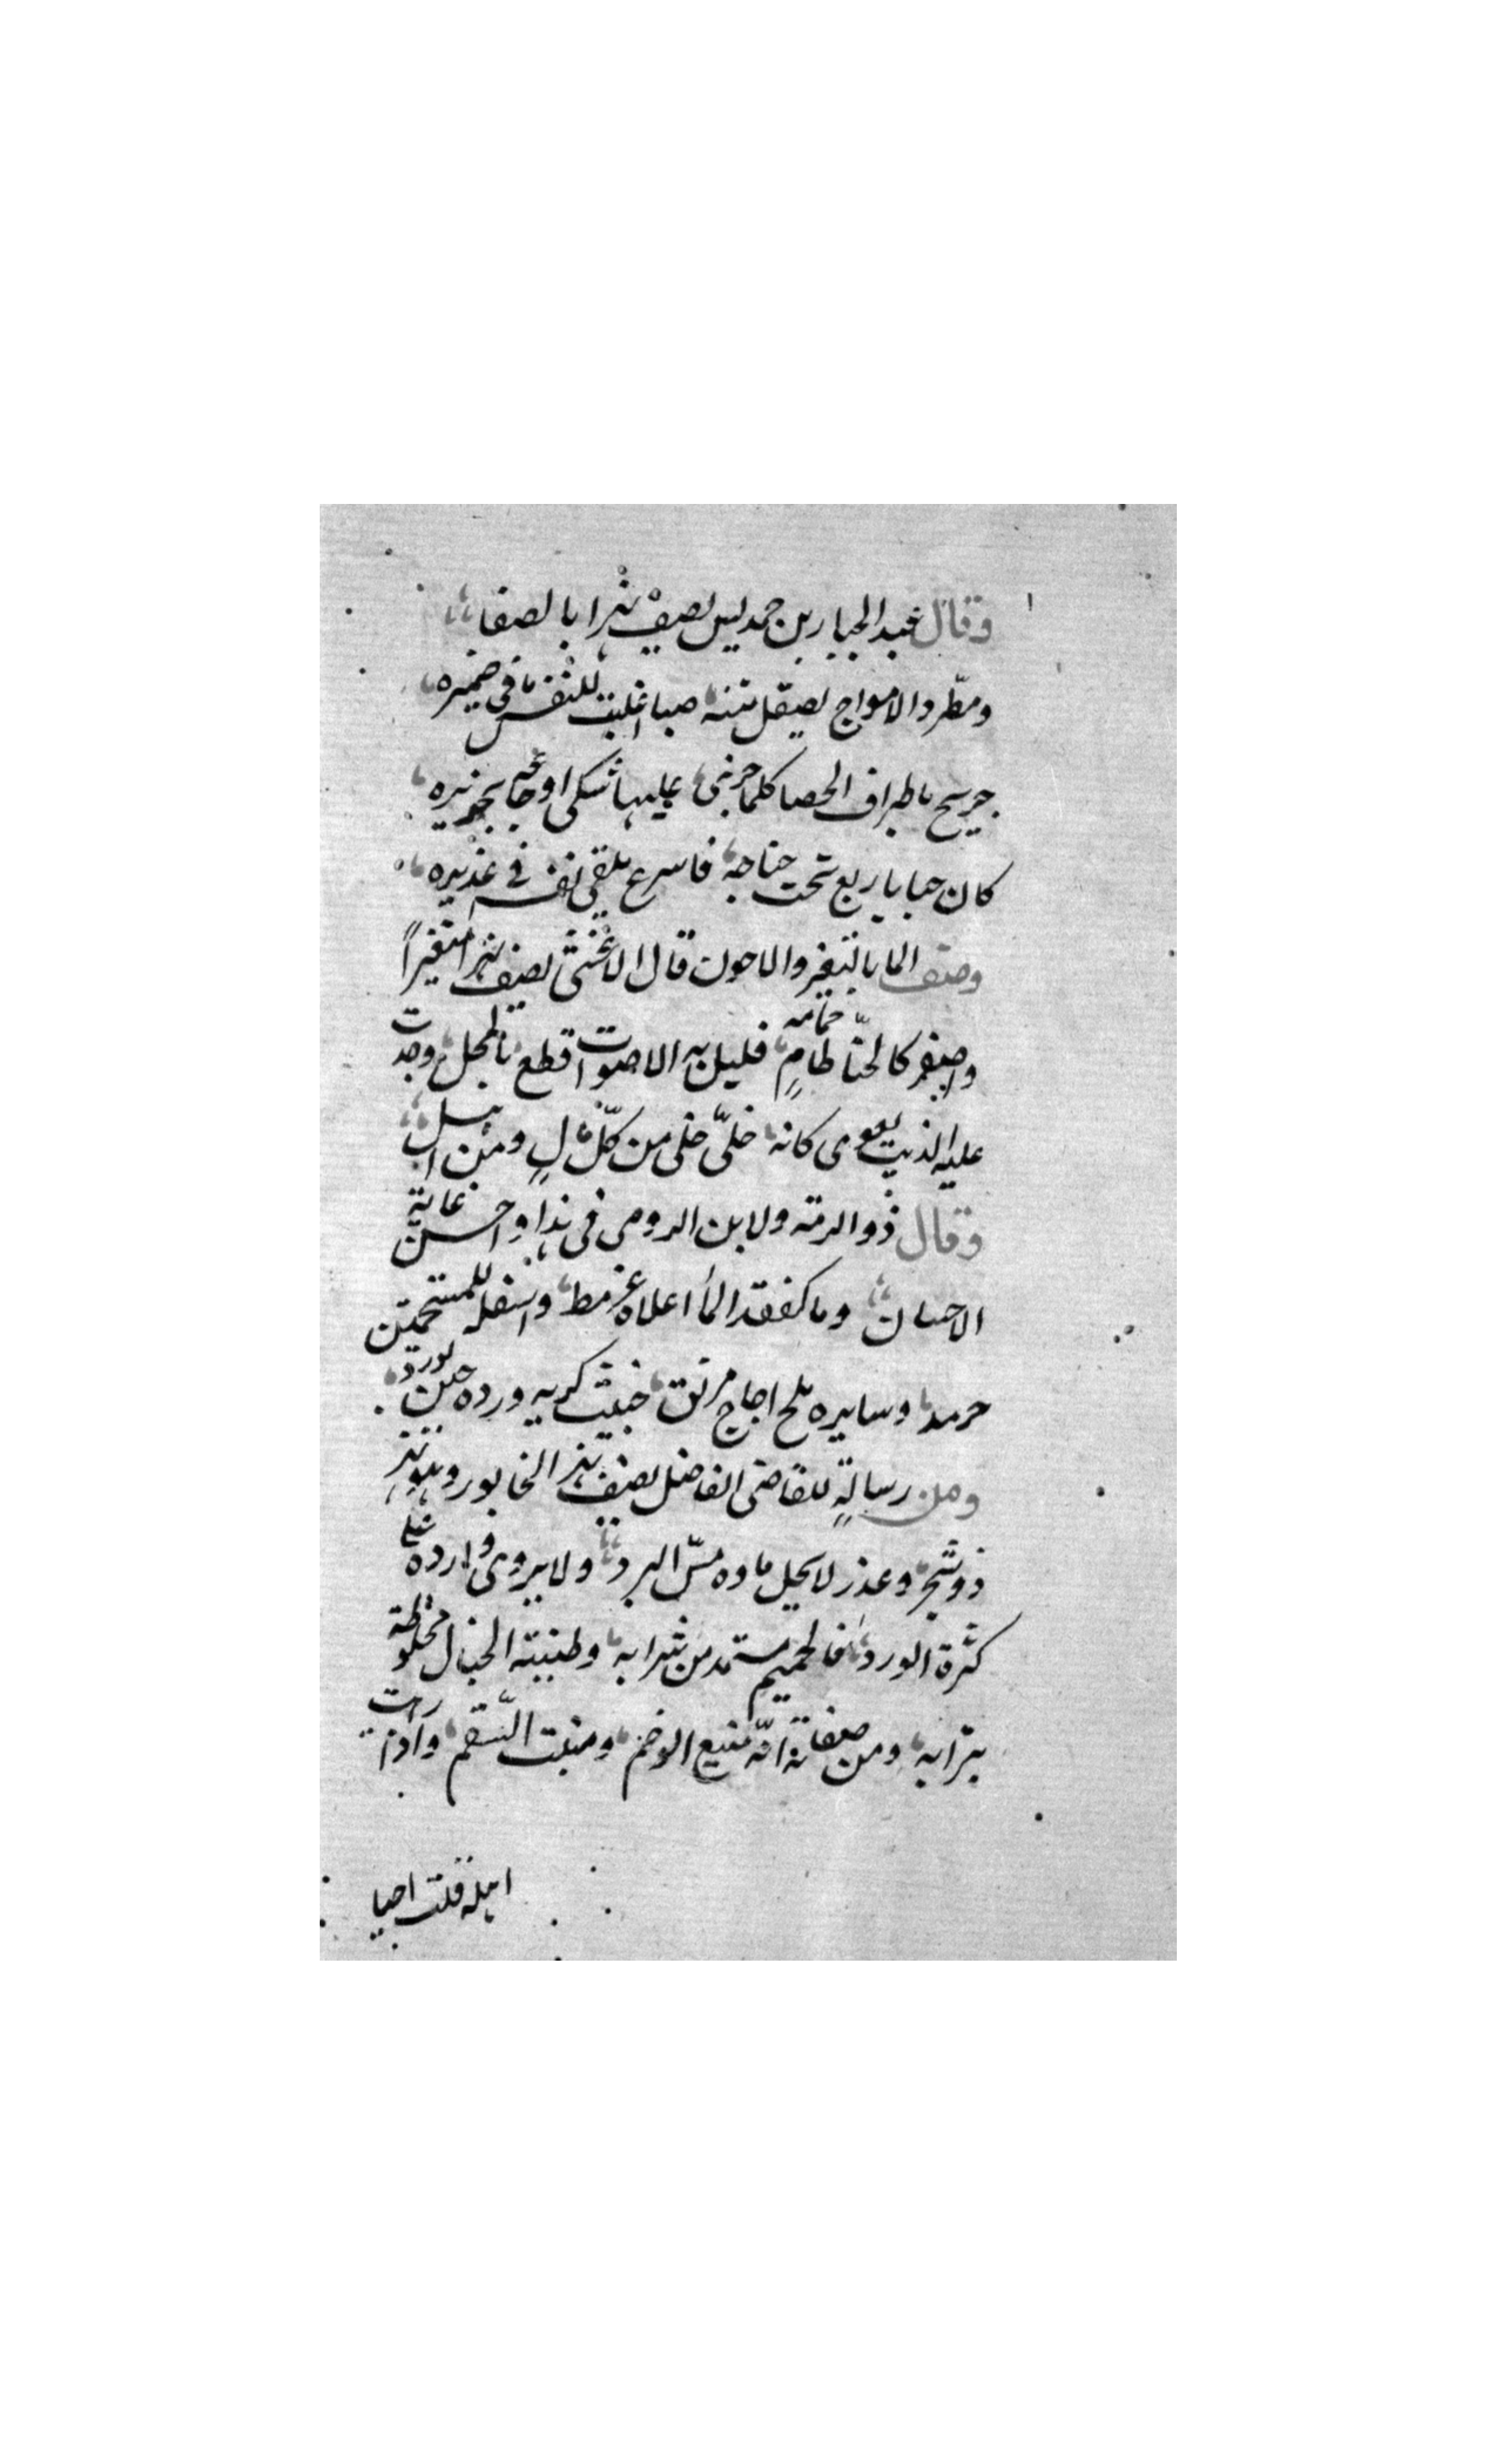 وقال عبد الجبار بن حمديس يصف نهرا بالصفا
ومطرد الامواج يصقل متنه صبا اعلنت للنفس ما في ضميره
جريح باطراف الحصا كلما جرى عليها شكى اوجاعه بخريره
كان حبابا ريع تحت حبابه فاسرع يلقي نفسه في غديره
وصف الما بالتغير والاجون قال الاخفش يصف نهرا متغيرا
واصفر كالحنا طام جمامه قليل به الاصوات قطع بالمحل وجدت
عليه الذيب يعوى كانه خلى خلى من كل مال ومن اهل
وقال ذو الرمة ولابن الرومى فى هذا واحسن غاية
الاحسان وما كفقد الما اعلاه عرمط واسفله للمستحمين
حرمد وسايره ملح اجاج مرنق خبيث كريه ورده حين يورد
ومن رسالة للقاضى الفاضل يصف نهر الخابور وهو نهر
ذو شجر وغدر لا يحيل ماوه مس البرد ولا يروى وارده على
كثرة الورد فالحميم مستمد من شرابه وطينته الخبال مخلوطة
بترابه ومن صفاته انه منبع الوخم ومنبت السقم واذا رات
اهله قلت احيا